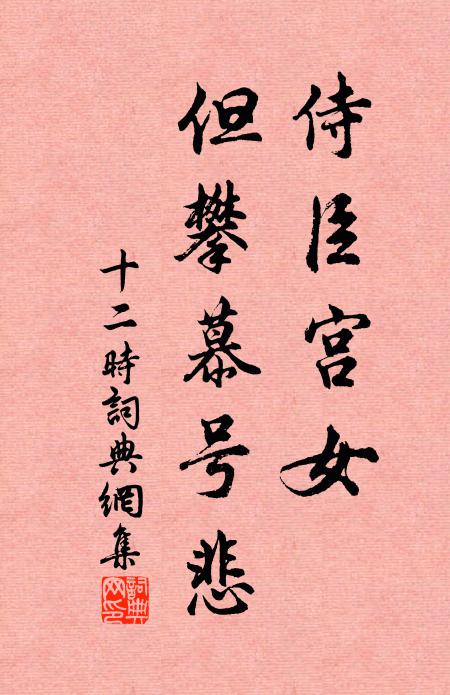 侍臣宫女
但攀慕号悲
十二時詞典網集
詞典
网印